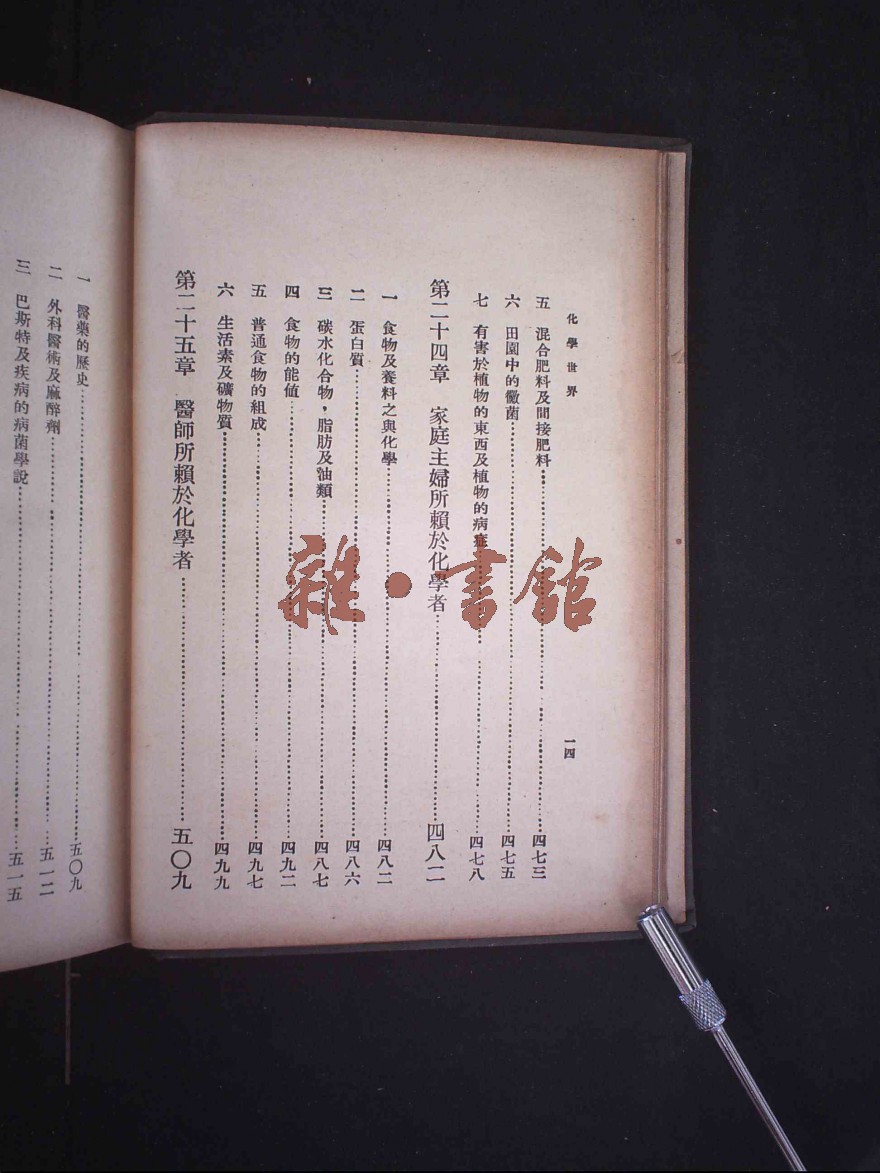 化學世界 一四
五 混合肥料及間接肥料 四七三
六 田園中的黴菌 四七五
七 有害於植物的東西及植物的病症 四七八
第二十四章 家庭主婦所賴於化學者 四八二
一 食物及養料之與化學 四八二
二 蛋白質 四八六
三 碳水化合物，脂肪及油類 四八七
四 食物的能値 四九二
五 普通食物的組成 四九七
六 生活素及礦物質 四九九
第二十五章 醫師所賴於化學者 五〇九
一 醫藥的歷史 五〇九
二 外科醫術及麻醉劑 五一二
三 巴斯特及疾病的病菌學說 五一五
雜·書館